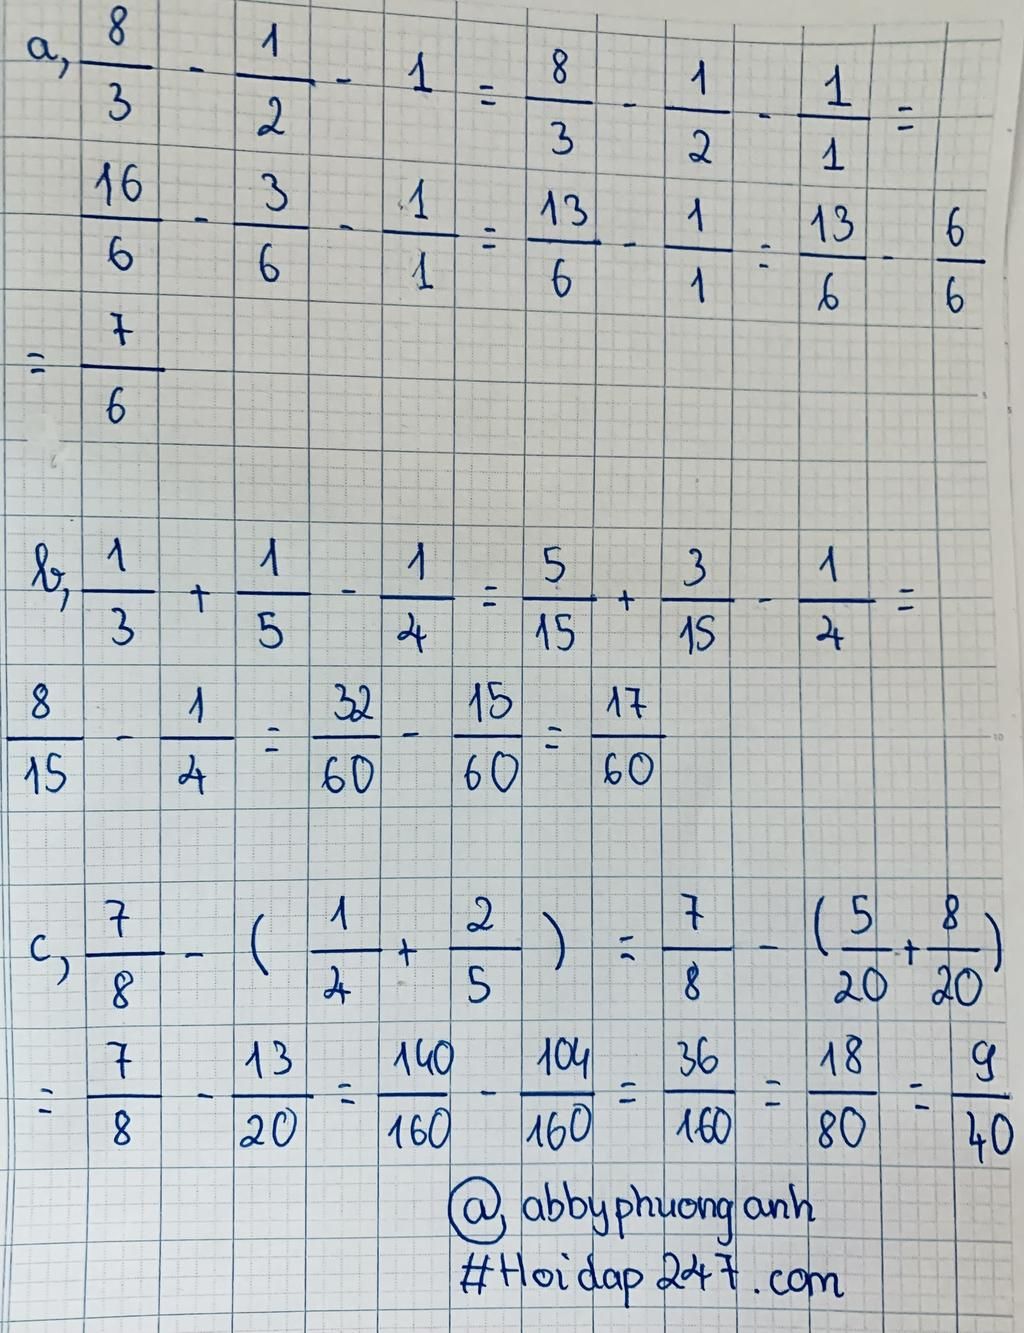 a, 8/3 - 1/2 - 1 = 8/3 - 1/2 - 1/1 =
16/6 - 3/6 - 1/1 = 13/6 - 1/1 = 13/6 - 6/6
= 7/6
b, 1/3 + 1/5 - 1/4 = 5/15 + 3/15 - 1/4 =
8/15 - 1/4 = 32/60 - 15/60 = 17/60
c, 7/8 - ( 1/4 + 2/5 ) = 7/8 - ( 5/20 + 8/20 )
= 7/8 - 13/20 = 140/160 - 104/160 = 36/160 = 18/80 = 9/40
@, abbyphuonganh
#Hoidap247.com